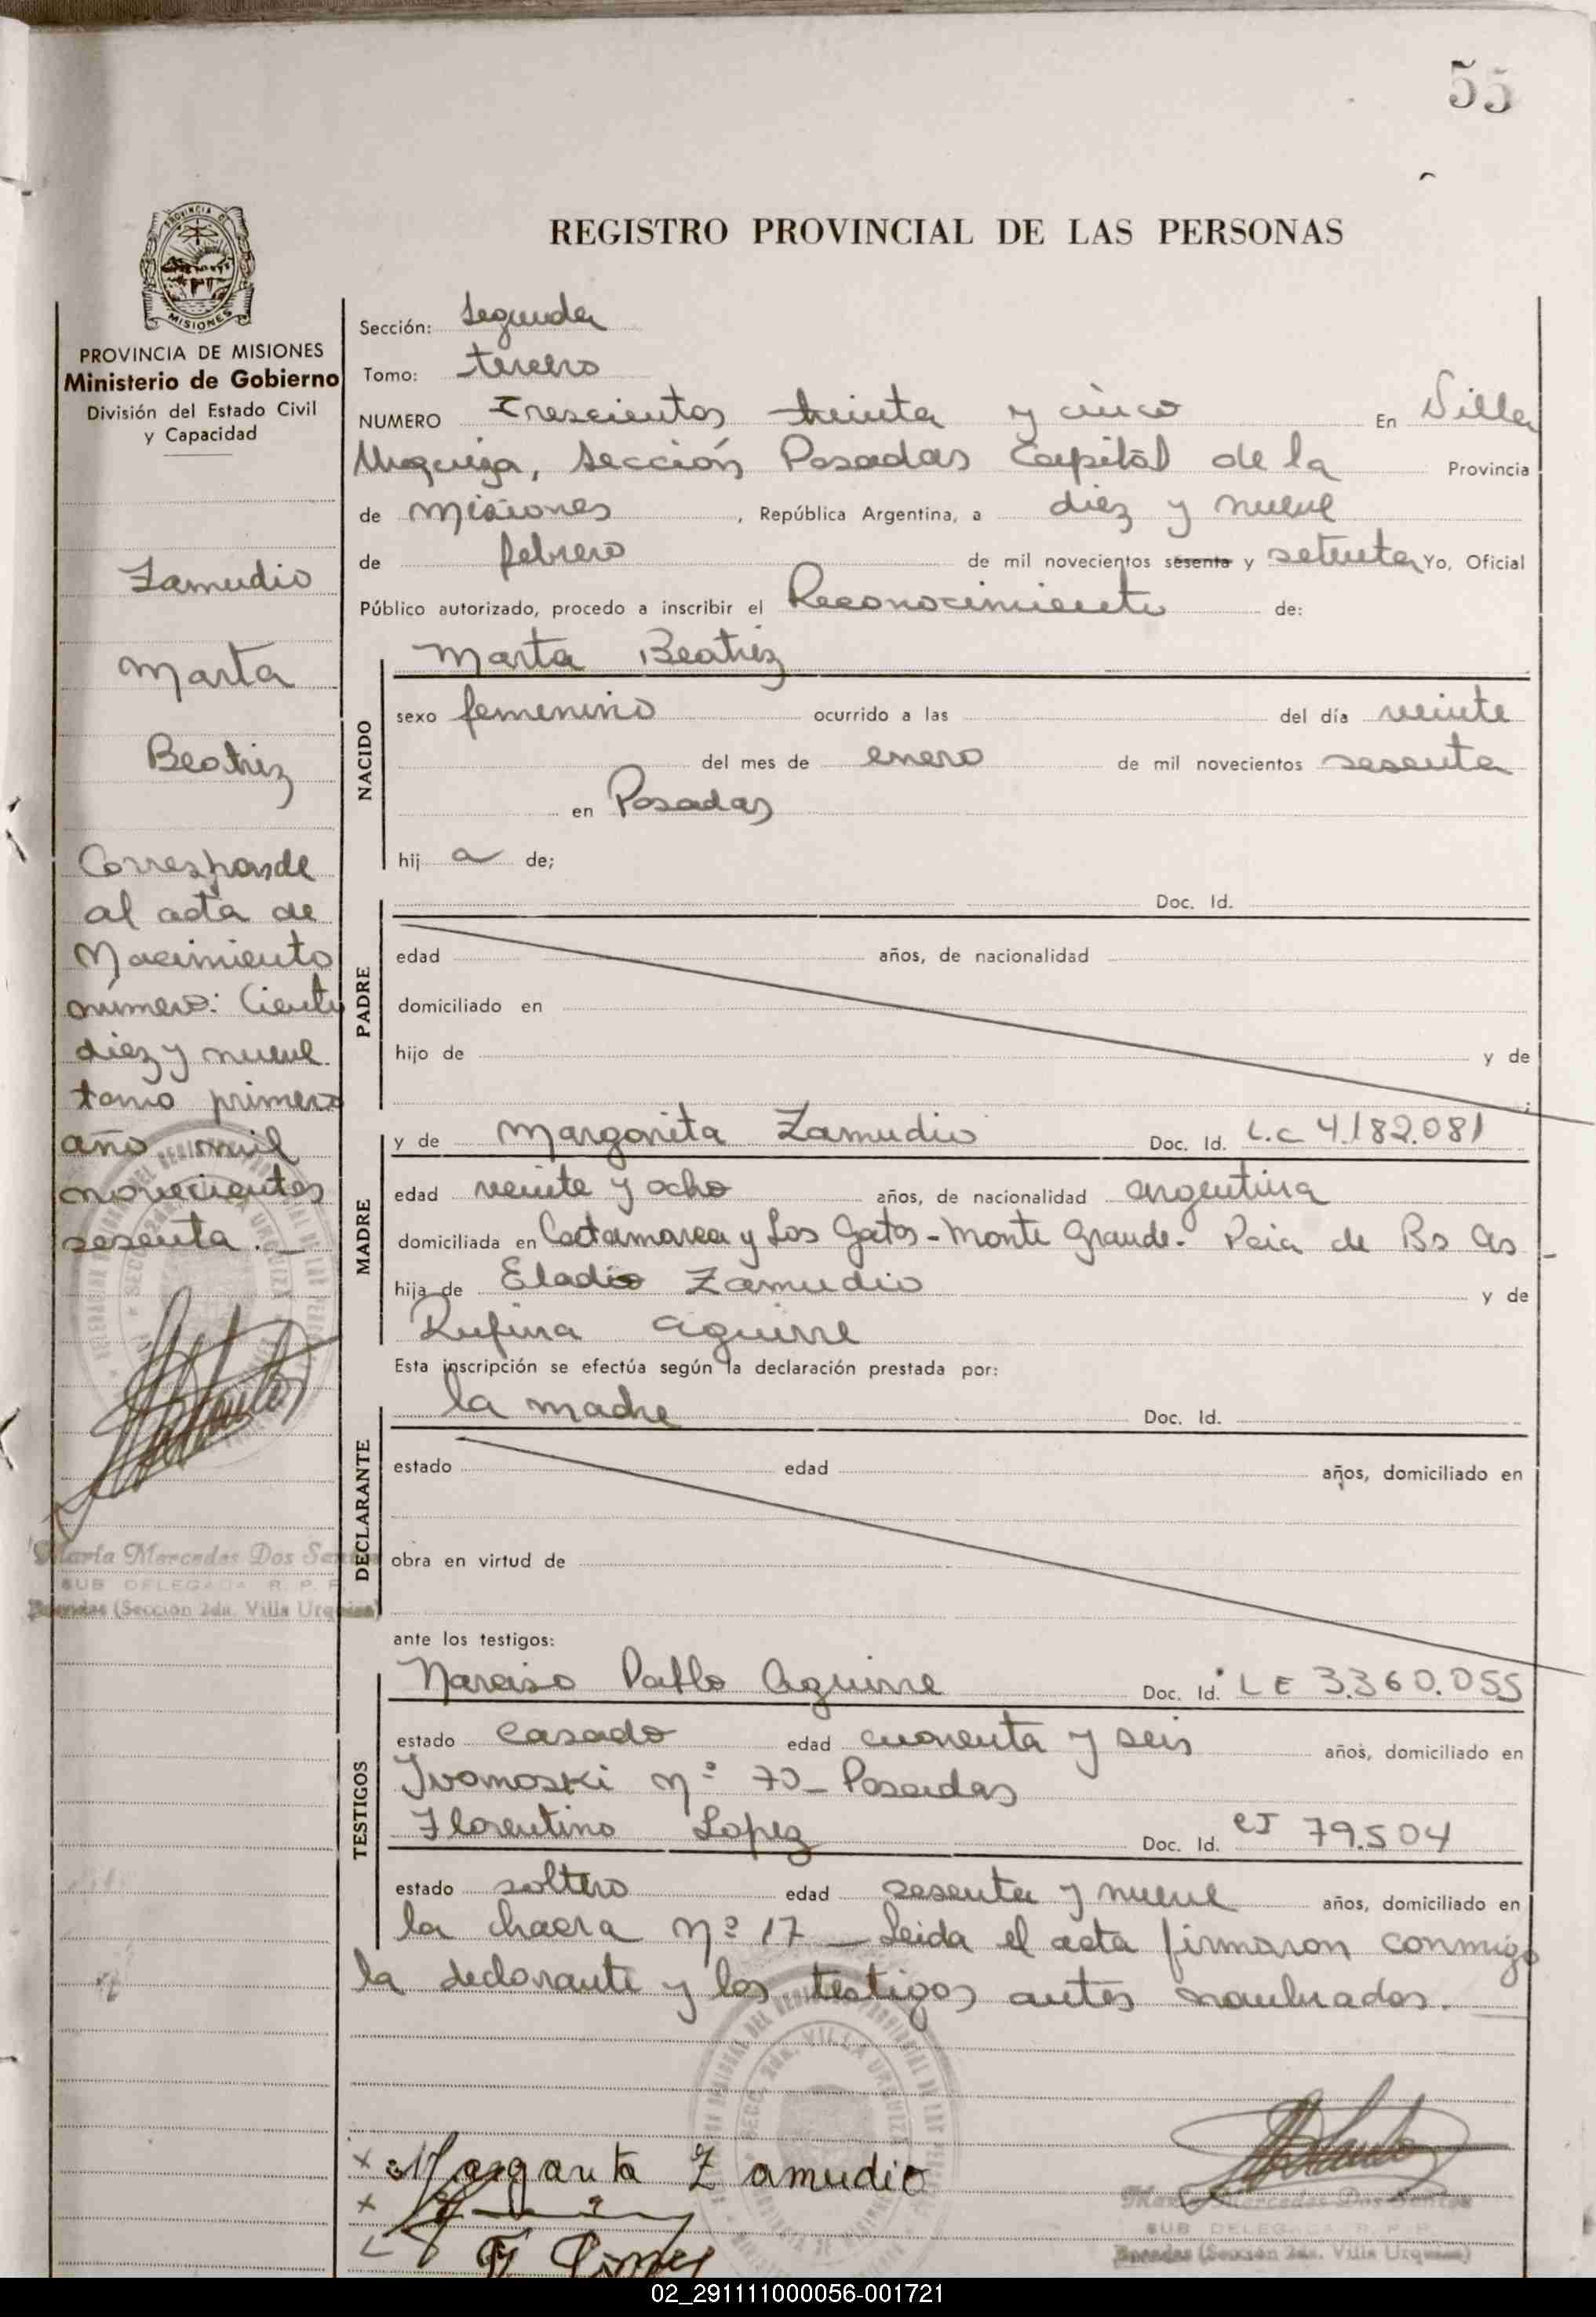 55
REGISTRO PROVINCIAL DE LAS PERSONAS
PROVINCIA DE MISIONES
Ministerio de Gobierno
División del Estado Civil
y Capacidad
Zamudio
Marta
Beatriz
Corresponde
al acta de
Nacimiento
número: Ciento
diez y nueve
tomo primero
año mil
novecientos
sesenta.
María Mercedes Dos Santos
SUB DELEGADA R. P. P.
Posadas (Sección 2da. Villa Urquiza)
Sección: Segunda
Tomo: tercero
NUMERO Trescientos treinta y cinco En Villa
Urquiza, Sección Posadas Capital de la Provincia
de Misiones, República Argentina, a diez y nueve
de febrero de mil novecientos sesenta y setenta Yo, Oficial
Público autorizado, procedo a inscribir el Reconocimiento de:
NACIDO
Marta Beatriz
sexo femenino ocurrido a las del día veinte
del mes de enero de mil novecientos sesenta
en Posadas
hij a de;
PADRE
Doc. Id.
edad años, de nacionalidad
domiciliado en
hijo de y de
MADRE
y de Margarita Zamudio Doc. Id. L.C 4.182.081
edad veinte y ocho años, de nacionalidad argentina
domiciliada en Catamarca y Los Gatos - Monte Grande. Pcia de Bs As -
hija de Eladio Zamudio y de
Rufina Aguirre
Esta inscripción se efectúa según la declaración prestada por:
DECLARANTE
la madre Doc. Id.
estado edad años, domiciliado en
obra en virtud de
ante los testigos:
TESTIGOS
Narciso Pablo Aguirre Doc. Id. LE 3.360.055
estado casado edad cuarenta y seis años, domiciliado en
nº 70 - Posadas
Florentino Lopez Doc. Id. CI 79.504
estado soltero edad sesenta y nueve años, domiciliado en
la chacra nº 17 - Leida el acta firmaron conmigo
la declarante y los testigos antes nombrados.
Margarita Zamudio
María Mercedes Dos Santos
SUB DELEGADA R. P. P.
Posadas (Sección 2da. Villa Urquiza)
02_291111000056-001721